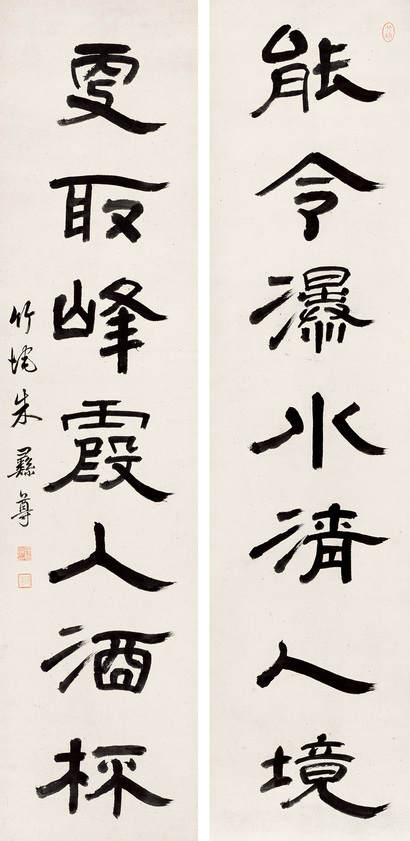 能令瀑水清人境
更取峰霞入酒杯
竹垞朱彝尊